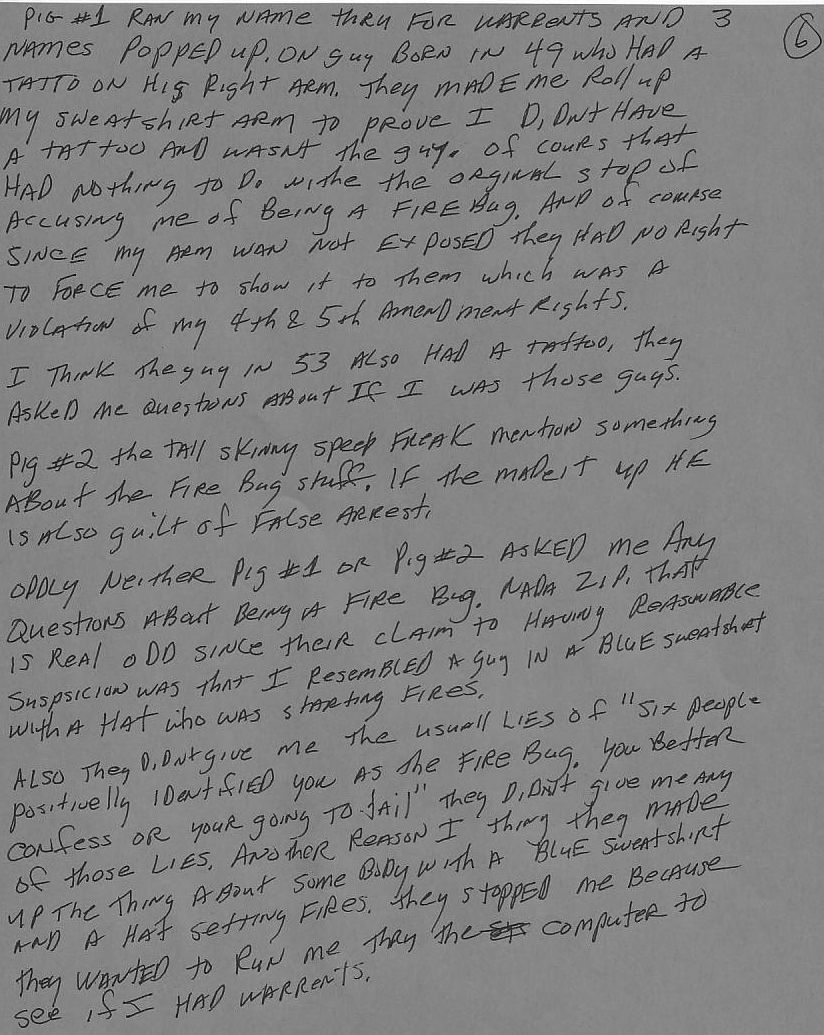 PIG #1 RAN MY NAME THRU FOR WARRENTS AND 3
NAMES POPPED UP. ON GUY BORN IN 49 WHO HAD A
TATTO ON HIS RIGHT ARM. THEY MADE ME ROLL UP
MY SWEATSHIRT ARM TO PROVE I DIDNT HAVE
A TATTOO AND WASNT THE GUY. OF COURS THAT
HAD NOTHING TO DO WITHE THE ORGINAL STOP OF
ACCUSING ME OF BEING A FIRE BUG. AND OF COURSE
SINCE MY ARM WAN NOT EXPOSED THEY HAD NO RIGHT
TO FORCE ME TO SHOW IT TO THEM WHICH WAS A
VIOLATION OF MY 4TH & 5TH AMENDMENT RIGHTS.
I THINK THE GUY IN 53 ALSO HAD A TATTOO, THEY
ASKED ME QUESTIONS ABOUT IF I WAS THOSE GUYS.
PIG #2 THE TALL SKINNY SPEED FREAK MENTION SOMETHING
ABOUT THE FIRE BUG STUFF. IF THE MADE IT UP HE
IS ALSO GUILT OF FALSE ARREST.
ODDLY NEITHER PIG #1 OR PIG #2 ASKED ME ANY
QUESTIONS ABOUT BEING A FIRE BUG. NADA ZIP. THAT
IS REAL ODD SINCE THEIR CLAIM TO HAVING REASONABLE
SUSPSICION WAS THAT I RESEMBLED A GUY IN A BLUE SWEATSHIRT
WITH A HAT WHO WAS STARTING FIRES.
ALSO THEY DIDNT GIVE ME THE USUALL LIES OF "SIX PEOPLE
POSITIVELLY IDENTIFIED YOU AS THE FIRE BUG. YOU BETTER
CONFESS OR YOUR GOING TO JAIL" THEY DIDN'T GIVE ME ANY
OF THOSE LIES. ANOTHER REASON I THING THEY MADE
UP THE THING ABOUT SOME BODY WITH A BLUE SWEATSHIRT
AND A HAT SETTING FIRES. THEY STOPPED ME BECAUSE
THEY WANTED TO RUN ME THRU THE COMPUTER TO
SEE IF I HAD WARRENTS.
6